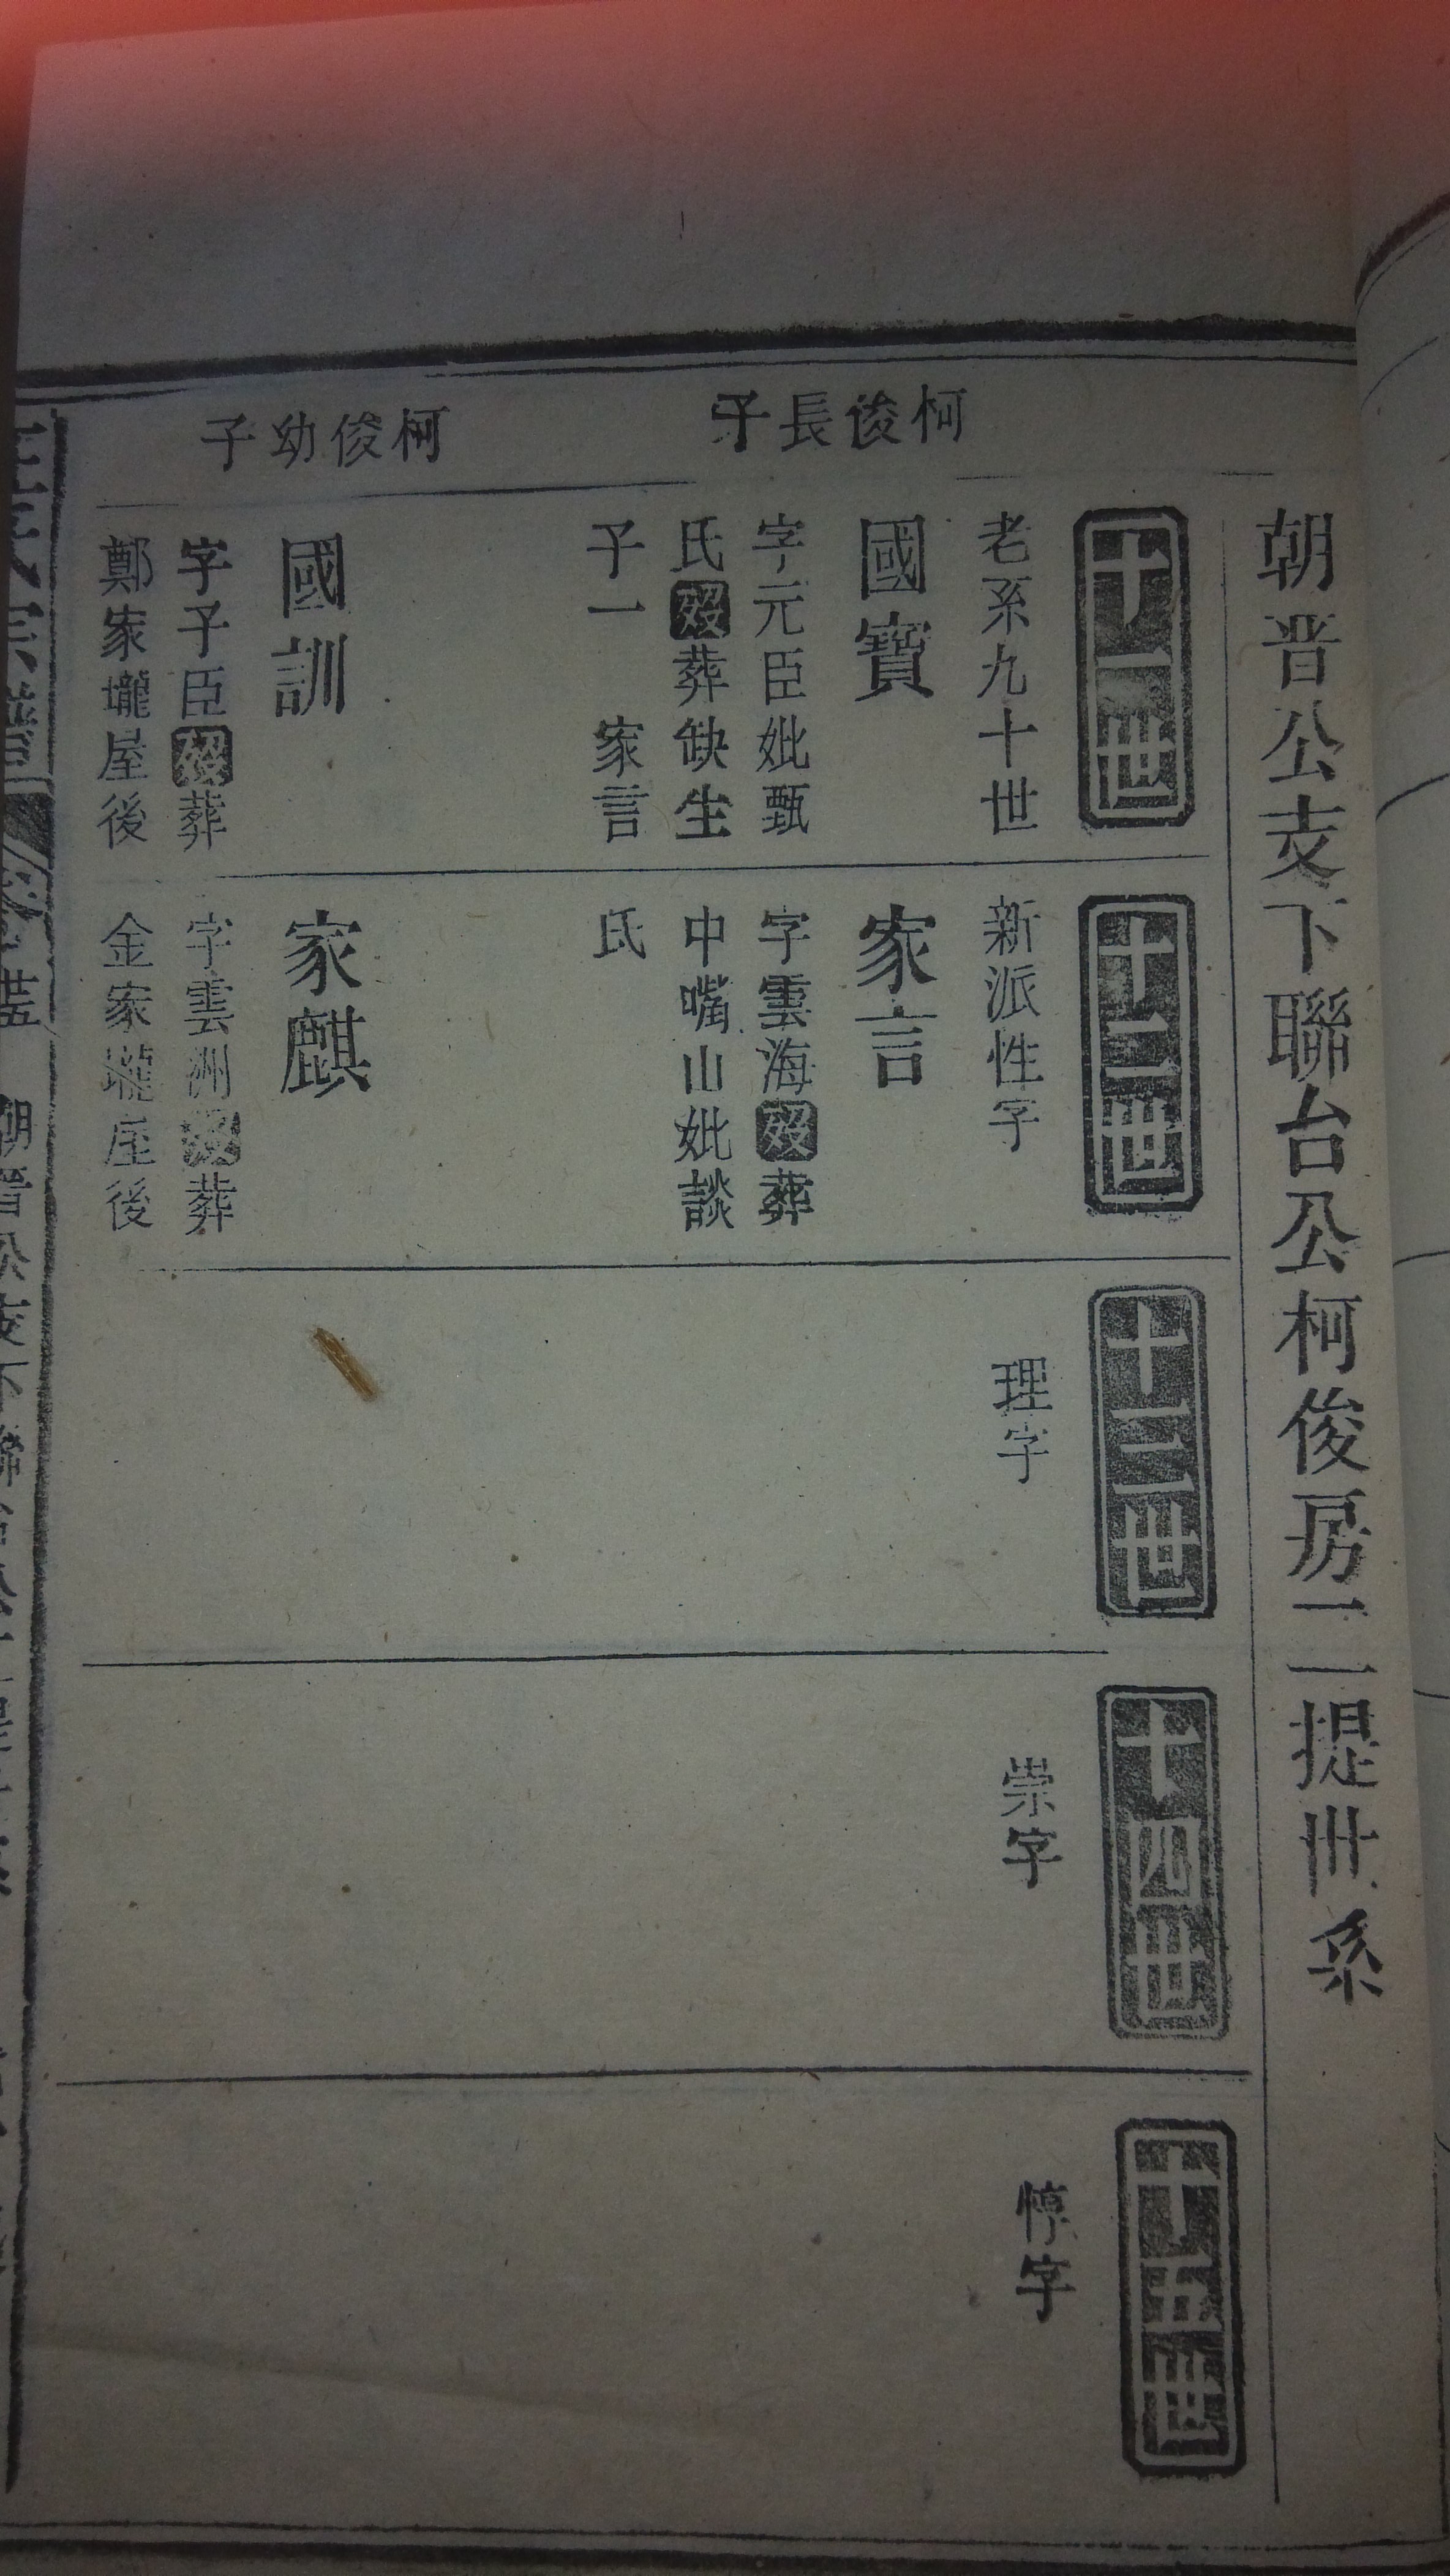 朝晋公支下聯台公柯俊房二一提世系
十一世
老系九十世
柯俊長子
國寶
字元臣妣甄
氏歿葬缺生
子一 家言
柯俊幼子
國訓
字子臣歿葬
鄭家壠屋後
十二世
新派性字
家言
字雲海歿葬
中嘴山妣談
氏
家麒
字雲洲歿葬
金家壠屋後
十三世
理字
十四世
崇字
十五世
惇字
氏宗譜
朝晋公支下聯台公